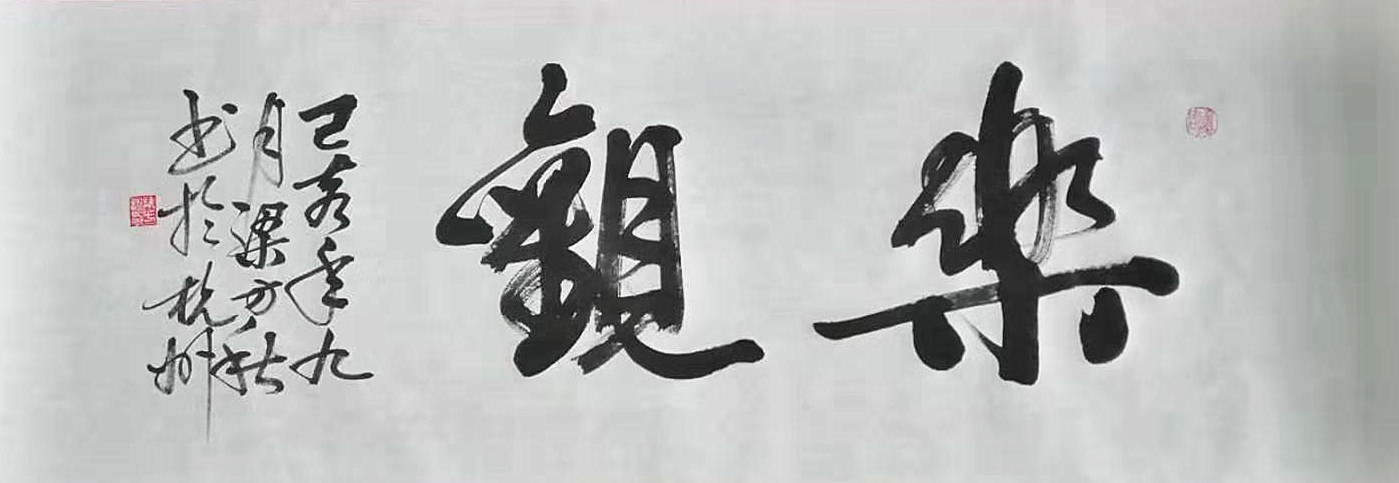 樂觀
己亥年九
月梁方秋
书於杭州